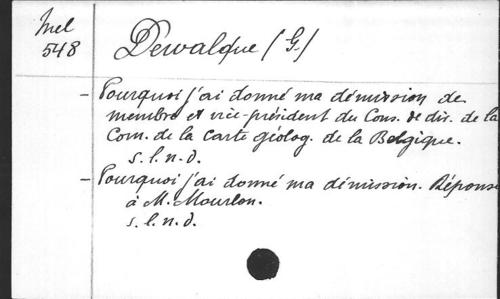 Mel
548
Dewalque (G.)
- Pourquoi j'ai donné ma démission de
membre et vice-président du Cons. de dir. de la
Com. de la Carte géolog. de la Belgique.
s. l. n. d.
- Pourquoi j'ai donné ma démission. Réponse
à M. Mourlon.
s. l. n. d.